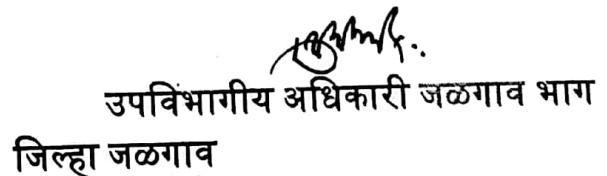 उपविभागीय अधिकारी जळगाव भाग
जिल्हा जळगाव